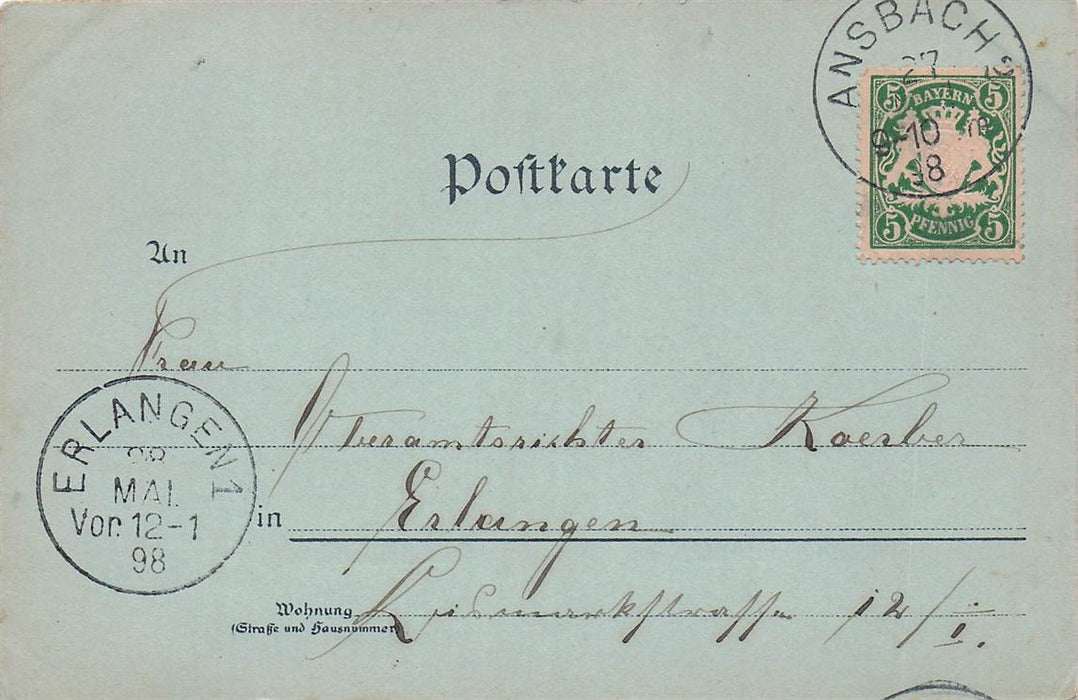 ANSBACH 2
27
9-10
98
5 BAYERN 5
5 PFENNIG 5
Poſtkarte
An
Frau
Oberamtsrichter Koerber
in Erlangen
Wohnung
(Straße und Hausnummer)
12/I.
ERLANGEN 1
28
MAI.
Vor. 12-1
98